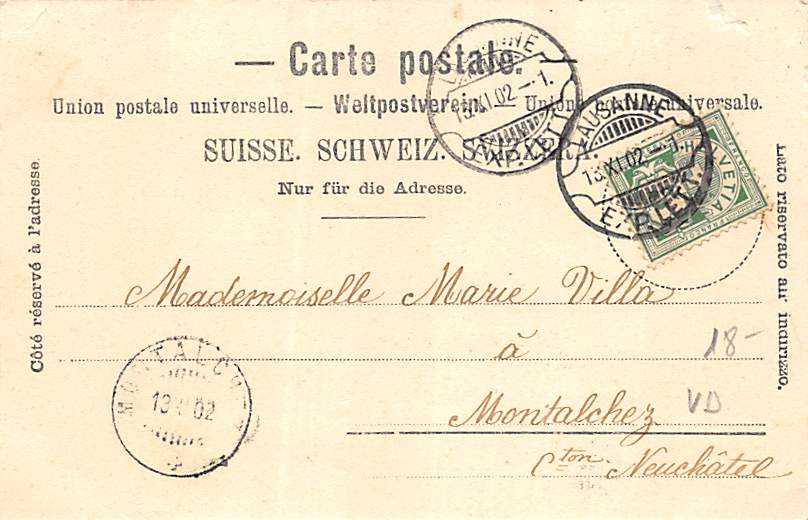 — Carte postale.
Union postale universelle. — Weltpostverein. — Unione postale universale.
SUISSE. SCHWEIZ. SVIZZERA.
Nur für die Adresse.
Côté réservé à l'adresse.
Lato riservato all' indirizzo.
LAUSANNE
13.XI.02 – 1.
EXP. LETT.
LAUSANNE
13.XI.02 – 1.
EXP. LETT.
HELVETIA
FRANCO
Mademoiselle Marie Villa
à
Montalchez
Cton Neuchâtel
18-
VD
MONTALCHEZ
13 XI 02